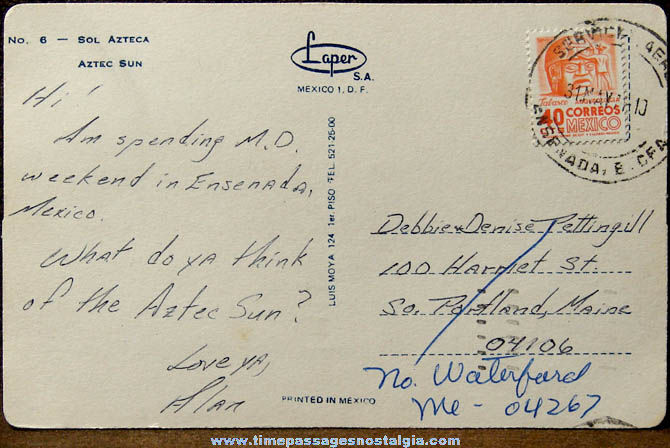 No. 6 — SOL AZTECA
AZTEC SUN
Laper
S.A.
MEXICO 1, D. F.
Hi!
Am spending M.D.
weekend in Ensenada,
Mexico.
What do ya think
of the Aztec Sun?
Love ya,
Alan
LUIS MOYA 124 1er. PISO TEL. 521-26-00
PRINTED IN MEXICO
SERVICIO AER
31 MAY
ENSENADA, B. CFA
Tabasco
40 CORREOS
MEXICO
Debbie & Denise Pettingill
100 Harriet St.
So. Portland, Maine
04106
No. Waterford
Me - 04267
www.timepassagesnostalgia.com